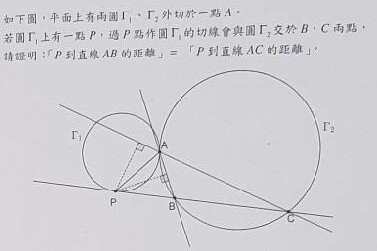 如下圖，平面上有兩圓Γ₁、Γ₂外切於一點A。
若圓Γ₁上有一點P，過P點作圓Γ₁的切線會與圓Γ₂交於B、C兩點，
請證明：「P到直線AB的距離」=「P到直線AC的距離」。
Γ₁
Γ₂
A
P
B
C